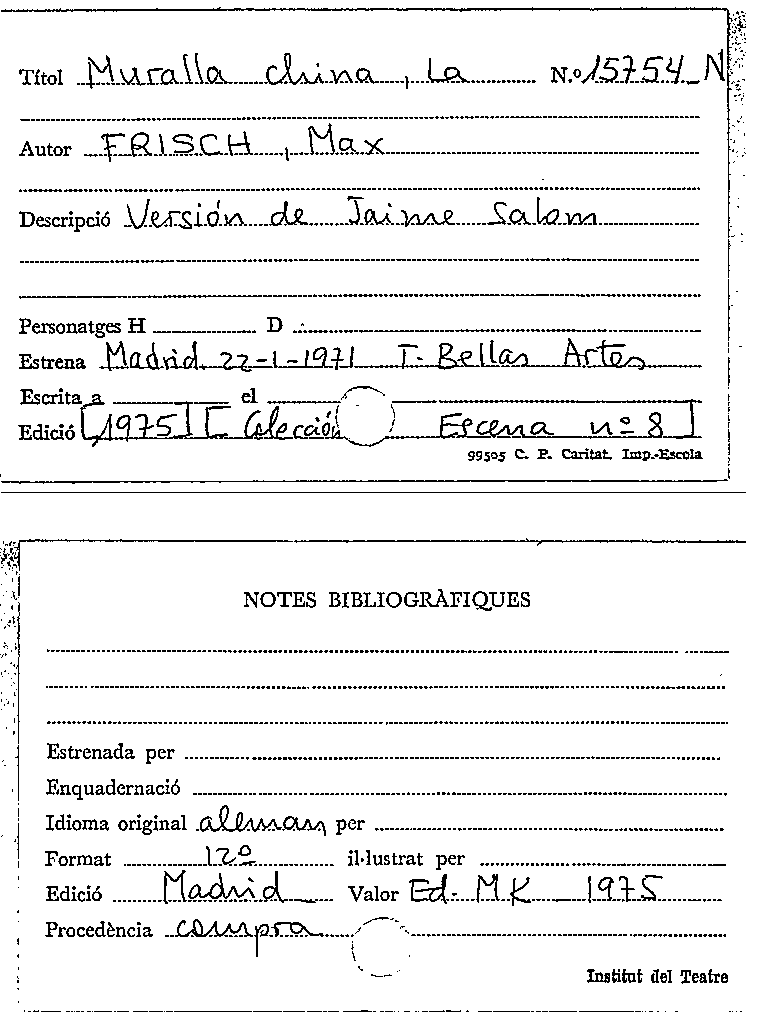 Títol Muralla china, La N.º 15754-N
Autor FRISCH, Max
Descripció Versión de Jaime Salom
Personatges H D
Estrena Madrid. 22-1-1971 T. Bellas Artes
Escrita a el
Edició [1975] [Colección Escena nº 8]
99505 C. P. Caritat. Imp.-Escola
NOTES BIBLIOGRÀFIQUES
Estrenada per
Enquadernació
Idioma original aleman per
Format 12º il·lustrat per
Edició Madrid Valor Ed. MK 1975
Procedència compra
Institut del Teatre